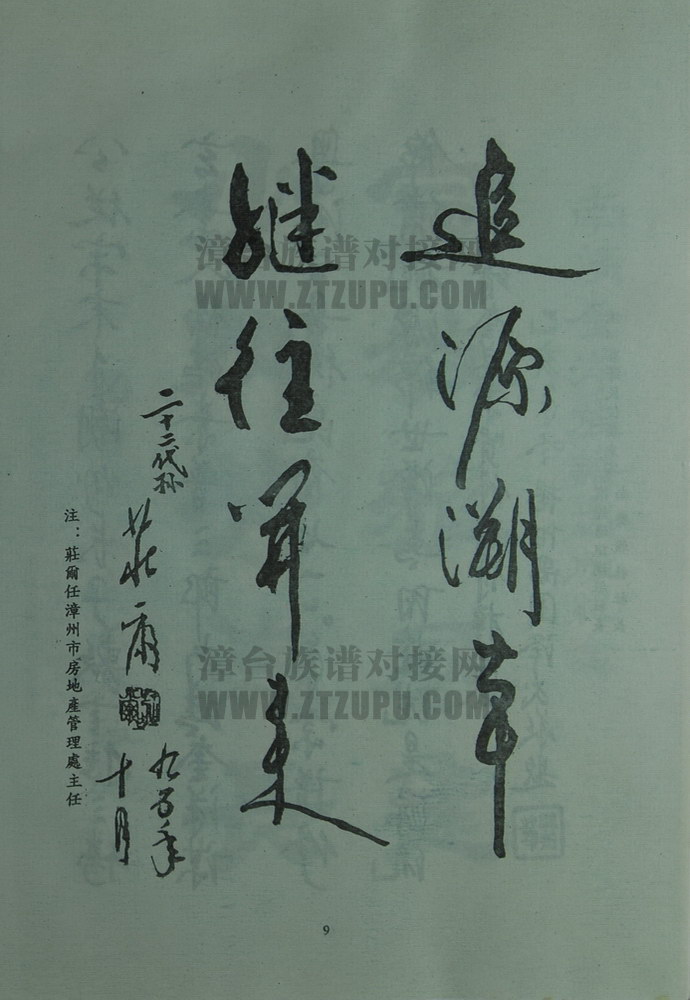 追源溯本
继往開来
二十二代孙
莊爾
九 年
十月
注：莊爾任漳州市房地產管理處主任
漳台族谱对接网
WWW.ZTZUPU.COM
漳台族谱对接网
WWW.ZTZUPU.COM
9